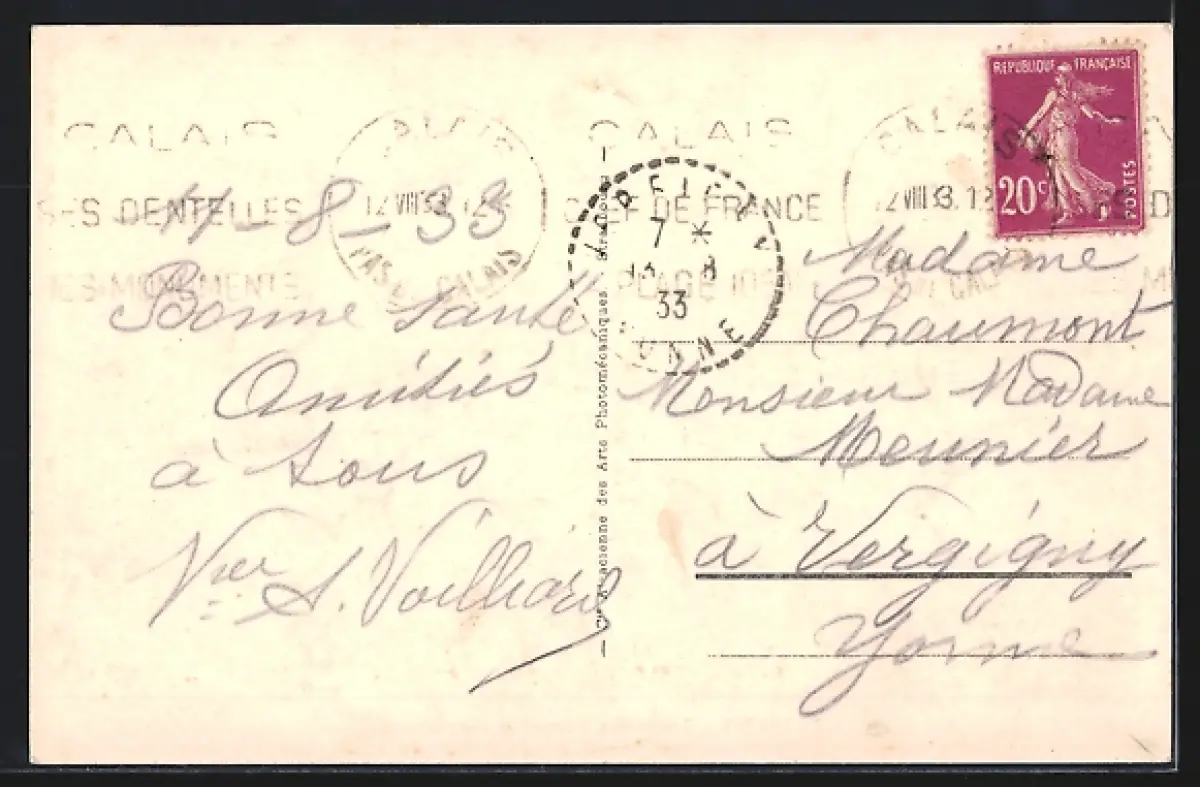 CALAIS
SES DENTELLES
SES MONUMENTS
12 VIII 33
PAS DE CALAIS
CALAIS
CLEF DE FRANCE
PLAGE IDEALE
CALAIS
12 VIII 33.
REPUBLIQUE FRANÇAISE
20c
POSTES
7 *
13 8
33
YONNE
11-8-33
Bonne Santé
Amitiés
à tous
Vier S. Voilliard
des Arts Photomécaniques
Madame
Chaumont
Monsieur Madame
Meunier
à Vergigny
Yonne